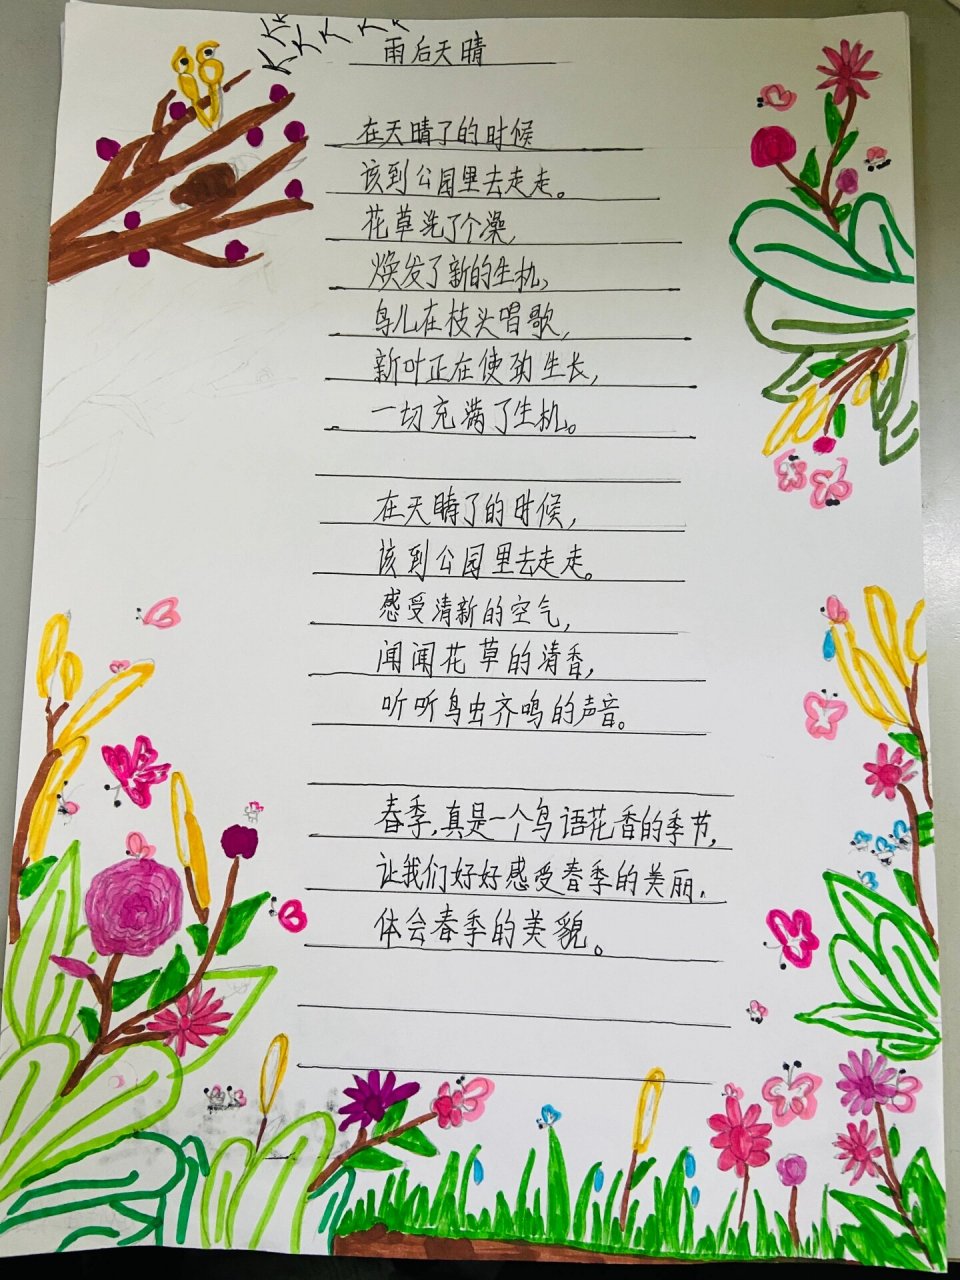 雨后天晴
在天晴了的时候
该到公园里去走走。
花草洗了个澡,
焕发了新的生机,
鸟儿在枝头唱歌,
新叶正在使劲生长,
一切充满了生机。
在天晴了的时候,
该到公园里去走走。
感受清新的空气,
闻闻花草的清香,
听听鸟虫齐鸣的声音。
春季,真是一个鸟语花香的季节,
让我们好好感受春季的美丽,
体会春季的美貌。